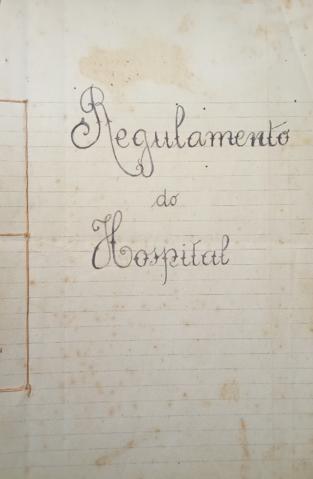 Regulamento
do
Hospital